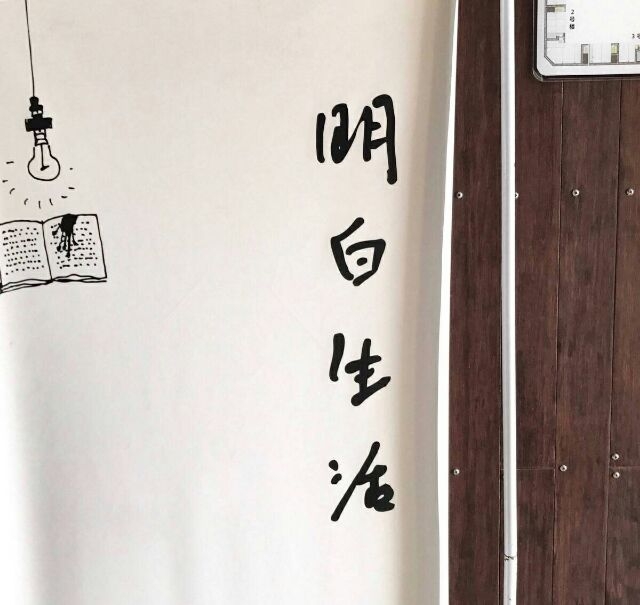 明白生活
2号楼
3号